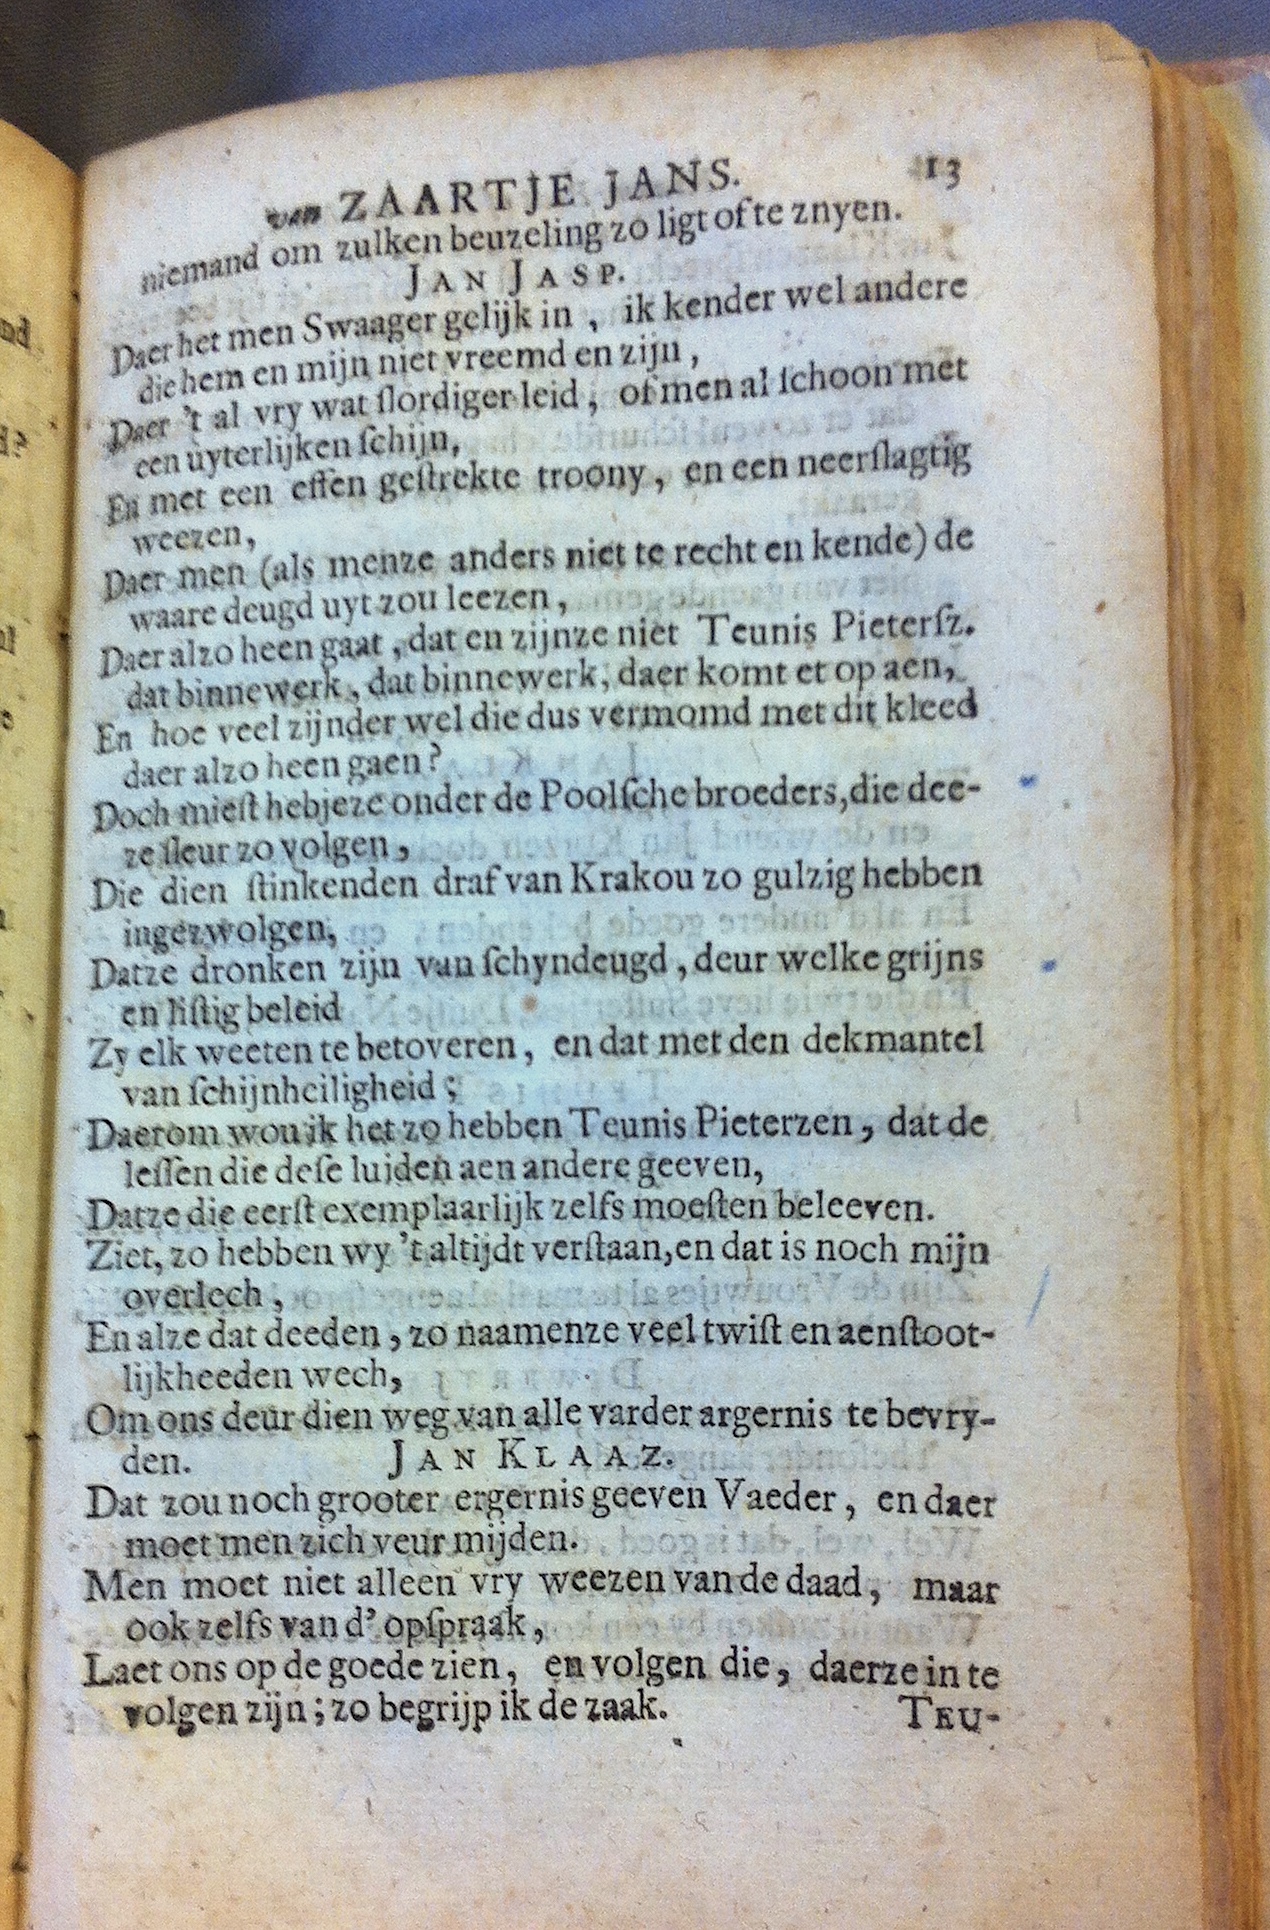 van ZAARTJE JANS. 13
niemand om zulken beuzeling zo ligt of te znyen.
JAN JASP.
Daer het men Swaager gelijk in, ik kender wel andere
die hem en mijn niet vreemd en zijn,
Daer 't al vry wat slordiger leid, of men al ſchoon met
een uyterlijken ſchijn,
En met een effen geſtrekte troony, en een neerſlagtig
weezen,
Daer men (als menze anders niet te recht en kende) de
waare deugd uyt zou leezen,
Daer alzo heen gaat, dat en zijnze niet Teunis Pieterſz.
dat binnewerk, dat binnewerk, daer komt et op aen,
En hoe veel zijnder wel die dus vermomd met dit kleed
daer alzo heen gaen?
Doch mieſt hebjeze onder de Poolſche broeders, die dee-
ze ſleur zo volgen,
Die dien ſtinkenden draf van Krakou zo gulzig hebben
ingezwolgen,
Datze dronken zijn van ſchyndeugd, deur welke grijns
en liſtig beleid
Zy elk weeten te betoveren, en dat met den dekmantel
van ſchijnheiligheid;
Daerom wou ik het zo hebben Teunis Pieterzen, dat de
leſſen die deſe luiden aen andere geeven,
Datze die eerſt exemplaarlijk zelfs moeſten beleeven.
Ziet, zo hebben wy 't altijdt verſtaan, en dat is noch mijn
overlech,
En alze dat deeden, zo naamenze veel twiſt en aenſtoot-
lijkheeden wech,
Om ons deur dien weg van alle varder argernis te bevry-
den. JAN KLAAZ.
Dat zou noch grooter ergernis geeven Vaeder, en daer
moet men zich veur mijden.
Men moet niet alleen vry weezen van de daad, maar
ook zelfs van d' opſpraak,
Laet ons op de goede zien, en volgen die, daerze in te
volgen zijn; zo begrijp ik de zaak.
TEU-